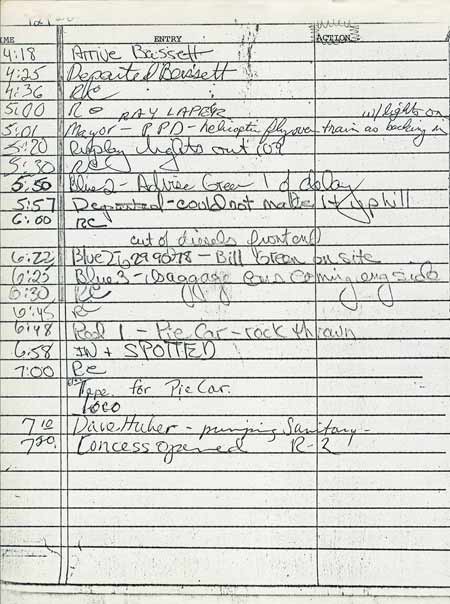 IME ENTRY ACTION
4:18 Arrive Bassett
4:25 Departed Bassett
4:36 RC
5:00 RC RAY LAPER w/ lights on
5:01 Mayor - RPD - helicopter flyover train as backing in
5:20 lights out
5:30 RC
5:50 Blue 2 - Advise Green 1 of delay
5:57 Departed - could not make it uphill
6:00 RC
cut of diesels front end
6:22 Blue 2 6299078 - Bill Green on site
6:25 Blue 3 - baggage coming eng side
6:30 RC
6:45 R
6:48 Red 1 - Pie Car - rock thrown
6:58 IN + SPOTTED
7:00 RC
Tape for Pie Car.
TOCO
7:10 Dave Huber - pumping Sanitary -
7:20 Concess opened R-2